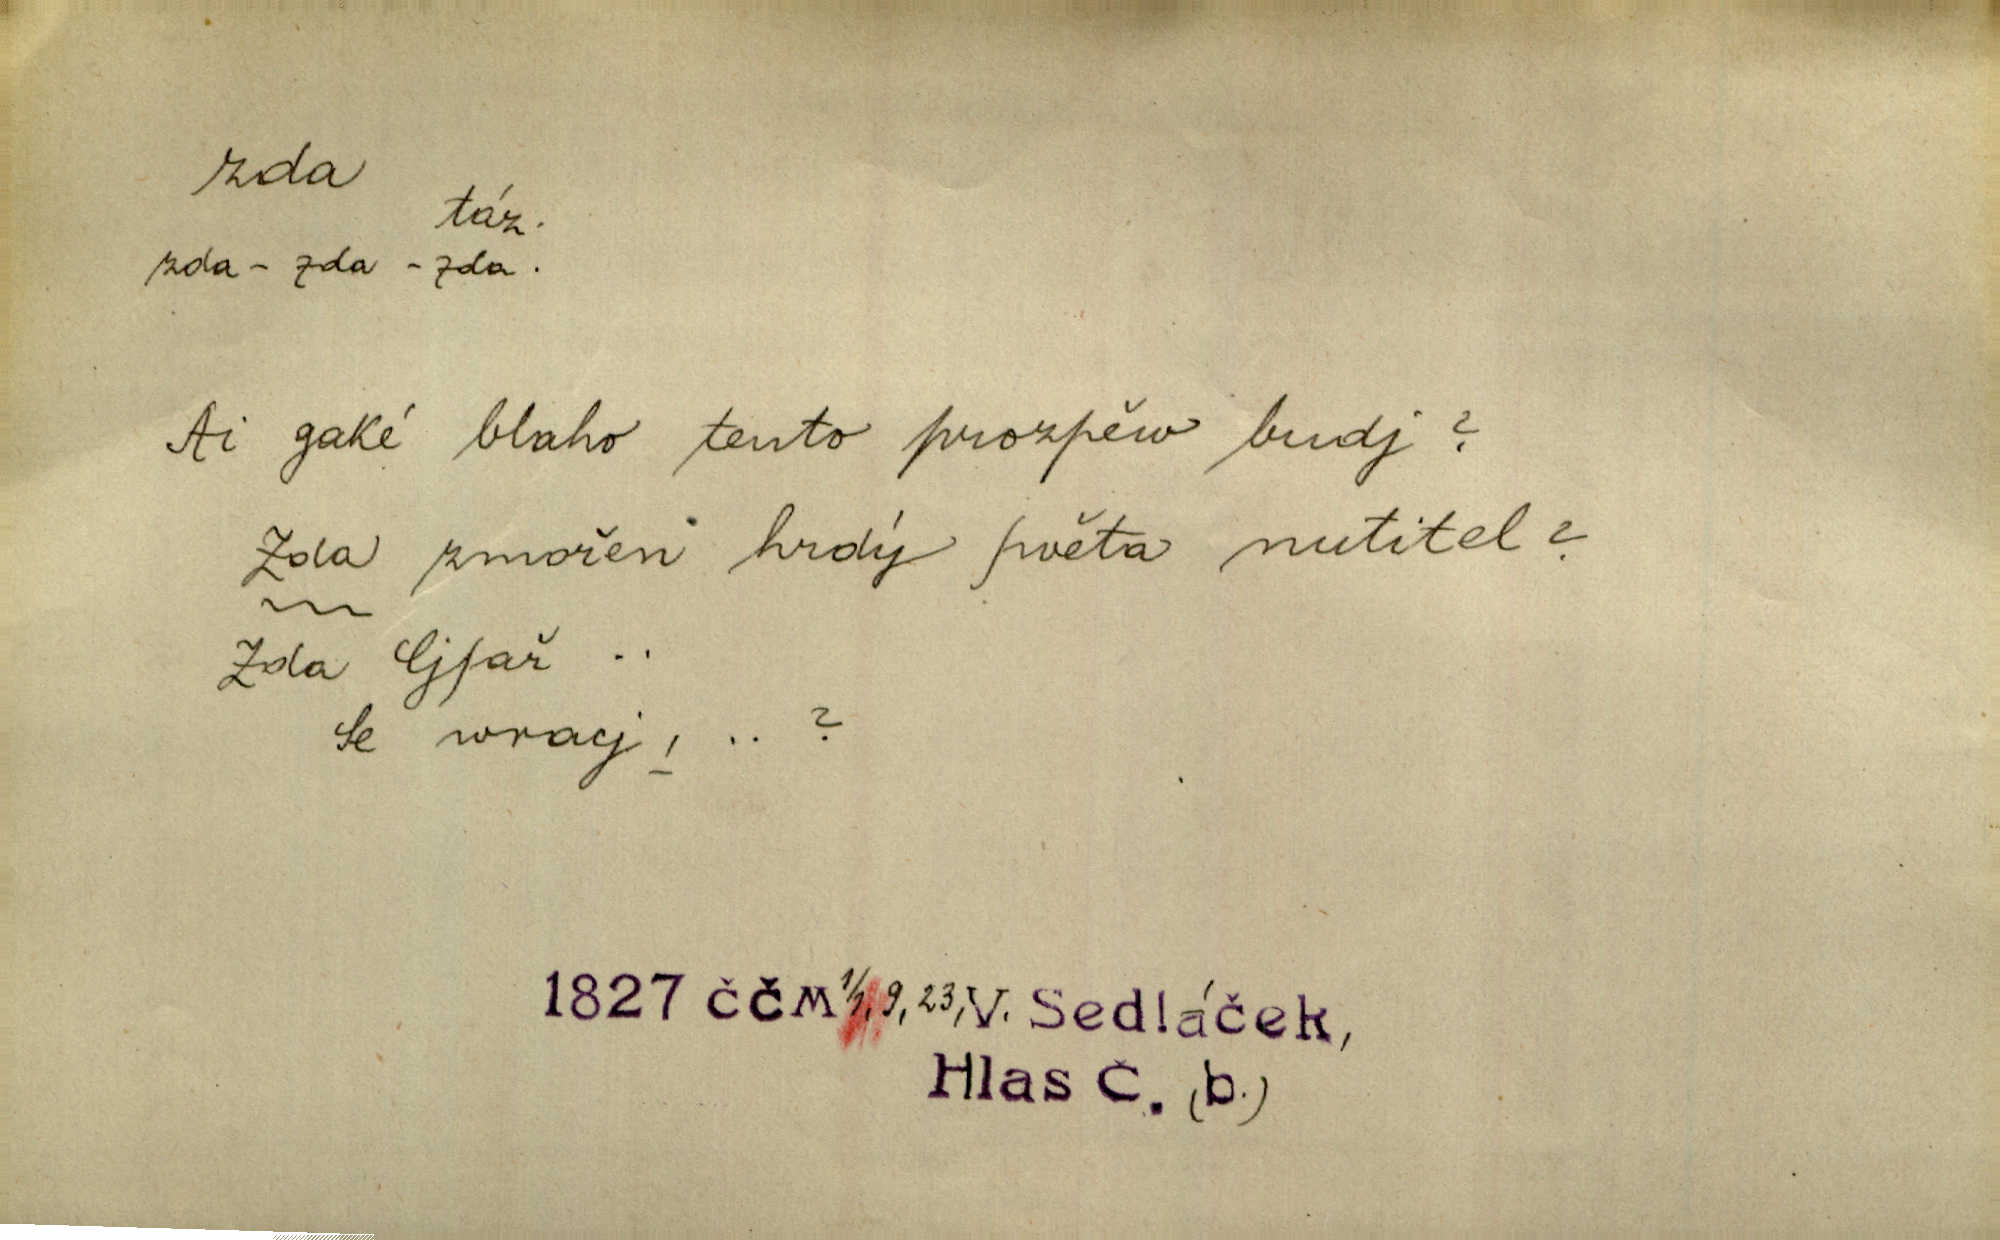 zda
táz.
zda - zda - zda.
Ai gaké blaho tento prozpěw budj?
Zda zmořen hrdý swěta nutitel?
Zda Cjsař ..
Se wracj, ..?
1827 ČČM 1/1, 9, 23, V. Sedláček,
Hlas Č. (b.)